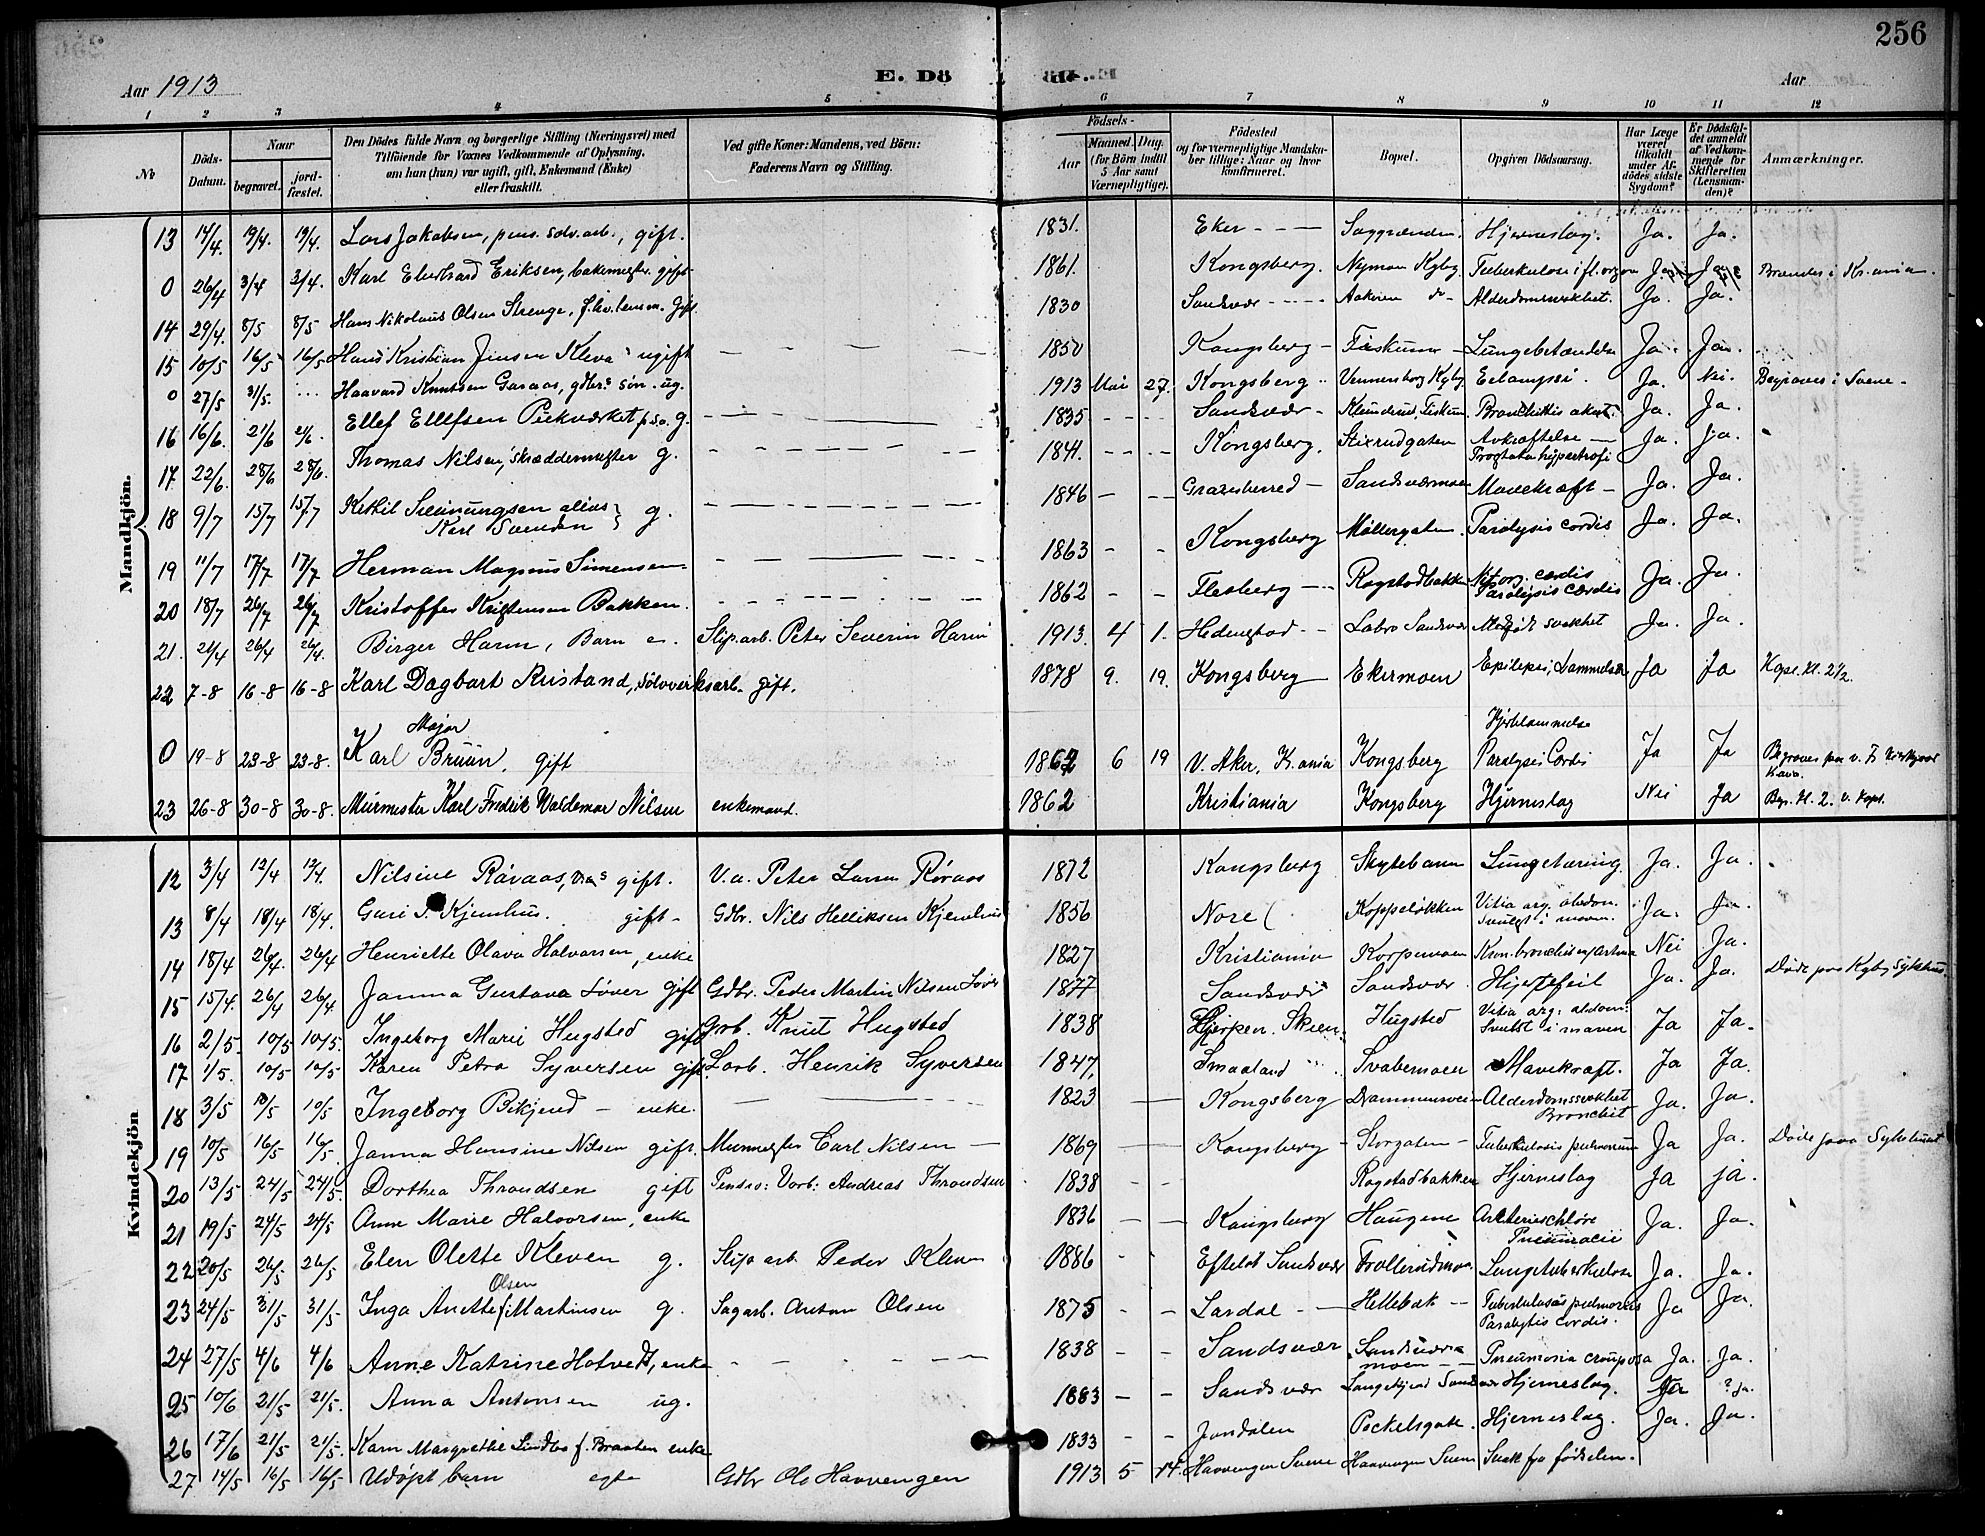 256
Aar 1913
E. Dö
Aar
1 2 3 4 5 6 7 8 9 10 11 12
No
Döds-Datum.
Naar
begravet.
jordfæstet.
Den Dödes fulde Navn og borgerlige Stilling (Næringsvei) med
Tilföiende for Voxnes Vedkommende af Oplysning,
om han (hun) var ugift, gift, Enkemand (Enke)
eller fraskilt.
Ved gifte Koner: Mandens, ved Börn:
Faderens Navn og Stilling.
Födsels-
Aar
Maaned. Dag.
(for Börn indtil
5 Aar samt
Værnepligtige).
Födested
og for værnepligtige Mandskaber tillige: Naar og hvor
konfirmeret.
Bopæl.
Opgiven Dödsaarsag.
Har Læge
været
tilkaldt
under Afdödes sidste
Sygdom?
Er Dödsfaldet anmeldt
af Vedkommende for
Skifteretten
(Lensmanden)?
Anmærkninger.
Mandkjön.
13 14/4. 19/4. 19/4. Lars Jakobsen, pens. sölv.arb., gift. 1831. Eker Saggrenden. Hjerneslag. Ja. Ja.
0 26/4 3/4 3/4. Karl Eberhard Eriksen, bakermester. gift 1861. Kongsberg. Nymoen Kgbg. Tuberkulose i fl. organ Ja Ja Brændes i Kr.ania.
14 29/4. 8/5 8/5 Hans Nikolaus Olsen Strenge, Gift 1830 Sandsvær Alderdomssvakhet. Ja. Ja.
15 10/5 16/5 16/5 Hans Kristian Jensen Kleva ugift 1850 Kongsberg Fiskum Lungebetændelse Ja. Ja.
0 27/5 31/5. Haavard Knutsen Garaas, gdbrs søn. ug. 1913 Mai 27. Kongsberg Vennersborg Kgbg. Eclampsi. Ja. Nei. Begraves i Svene.
16 16/6. 21/6 21/6. Ellef Ellefsen Pukværket p.s.a. g. 1835 Sandsvær Fiskum. Bronchitis akut. Ja. Ja.
17 22/6. 28/6 28/6. Thomas Nilsen, skræddermester g. 1841. Kongsberg. Stixrudgaten Avkræftelse Prostatahypertrofi Ja. Ja.
18 9/7 15/7 15/7 Ketil Sveinungsen alias Karl Svendsen g. 1846 Gransherred Sandsværmoen Mavekræft Ja. Ja.
19 11/7 17/7 17/7 Herman Magnus Simensen 1863 Kongsberg Möllergaten Paralysis cordis Ja. Ja.
20 18/7 26/7 26/7 Kristoffer Kristensen Bakken. 1862 Flesberg Rogstadbakken Vit. org. cordis Paralysis cordis Ja. Ja.
21. 21/4 26/4 26/4. Birger Harm, Barn e. Slip.arb. Peter Severin Harm 1913. 4 1. Hedenstad Labro Sandsvær Medfødt svakhet Ja. Ja.
22 7-8 16-8 16-8 Karl Dagbart Ristand, sölvverksarb. gift. 1878 9. 19. Kongsberg Ekermoen Epilepsi, Lammelse Ja Ja Kapel. Kl. 2 1/2.
0 19-8 23-8 23-8. Major Karl Bruun, gift 1862 6 19 V. Aker, Kr.ania Kongsberg Hjertelammelse Paralysi Cordis Ja Ja
23 26-8 30-8 30-8. Murmester Karl Fredrik Waldemar Nilsen enkemand. 1862 Kristiania Kongsberg Hjerneslag Nei Ja
Kvindekjön
12 3/4 12/4 12/4. Nilsine Råvaas, gift. V.a. Peter Larsen Råvaas 1872 Kongsberg Skytebanen Lungetæring. Ja. Ja.
13 8/4 18/4 18/4. Guri Kjemhus. gift Gdbr. Nils Helliksen Kjemhus 1856 Nore Koppeløkken Vitia org. abdom. Svulst i maven. Ja. Ja.
14 18/4 26/4. 26/4 Henriette Olava Halvorsen, enke 1827 Kristiania Korpemoen Kron. bronchit og Astma Nei Ja.
15 15/4. 26/4 26/4. Janna Gustava Löver gift Gdbr. Peder Martin Nilsen Löver 1877 Sandsvær Sandsvær Hjertefeil Ja. Ja. Döde paa Kgbg Sykehus.
16 2/5. 10/5 10/5. Ingeborg Marie Hugsted gift Grb. Knut Hugsted 1838 Gjerpen. Skien. Hugsted Vitia org. abdom: Svulst i maven Ja Ja.
17 1/5. 10/5 10/5. Karen Petra Syversen gift. Sarb. Henrik Syversen 1847, Smaaland Svabemoen Mavekræft. Ja Ja.
18 3/5 10/5 10/5 Ingeborg Bikjend enke. 1823 Kongsberg Drammensvei Alderdomssvakhet Bronchit Ja. Ja.
19 10/5 16/5 16/5. Janna Hansine Nilsen gift. Murmester Carl Nilsen 1869 Kongsberg Storgaten Tuberkulosis pulmonum Ja Ja. Döde paa Sykehuset
20 13/5 24/5 24/5. Dorthea Throndsen gift Pensio: Varb: Andreas Throndsen 1838 Rogstadbakken Hjerneslag Ja ja.
21 19/5 24/5 24/5 Anne Marie Halvorsen, enke 1836 Kongsberg Haugene Ja. Ja.
22 20/5 26/5 26/5 Elen Olette Kleven g. Slip arb. Peder Kleven 1886 Efteløt Sandsvær Trollerudmoen Lungetuberkulose Ja. Ja.
23 24/5 31/5 31/5 Inga Anette Olsen f. Martinsen g. Sagarb. Anton Olsen 1875 Lardal Hellebæk Tuberkulosis pulmonis Paralysis cordis. Ja Ja.
24 27/5 4/6 4/6 Anne Katrine Hotvedt, enke 1838 Sandsvær Sandsværmoen Pneumonia crouposa Ja. Ja.
25 10/6 21/5 21/5. Anna Antonsen ug. 1883 Sandsvær Hjerneslag. Ja ? Ja.
26 17/6 21/5 21/5. Karn Margrethe Lindbo f. Braaten enke 1833 Jondalen Peckelsgate. Hjerneslag. Ja. Ja.
27 14/5 16/5 16/5. Udöpt barn egte Gdbr Ole Haavengen 1913 5 14. Haavengen Svene Haavengen Svene Svak fra födselen.